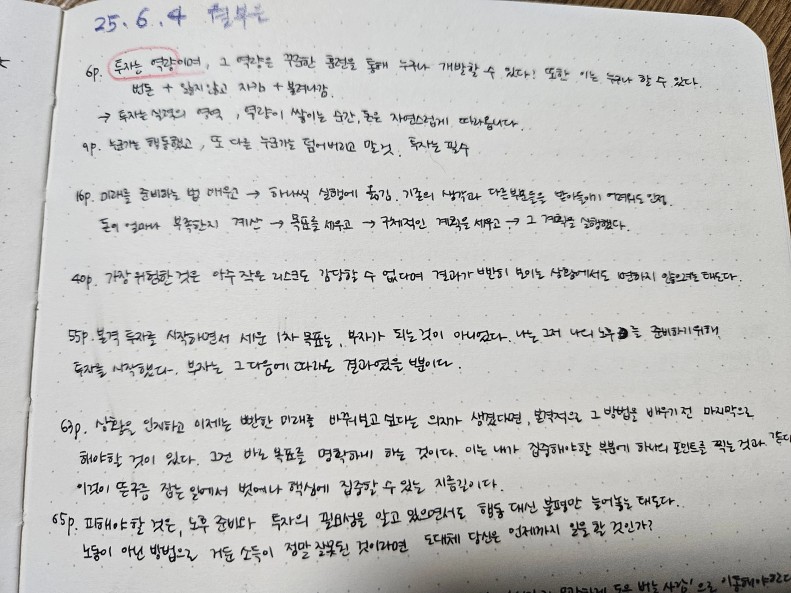 25. 6. 4 월부은
6p. 투자는 역량이며, 그 역량은 꾸준한 훈련을 통해 누구나 개발할 수 있다! 또한 이는 누구나 할 수 있다.
번돈 + 잃지않고 지킴 + 불려나감.
→ 투자는 실력의 영역, 역량이 쌓이는 순간, 돈은 자연스럽게 따라옵니다.
9p. 누군가는 행동했고, 또 다른 누군가는 덮어버리고 말 것. 투자는 필수
16p. 미래를 준비하는 법 배우고 → 하나씩 실행에 옮김. 기존의 생각과 다른부분들은 받아들이기 어려워도 인정.
돈이 얼마나 부족한지 계산 → 목표를 세우고 → 구체적인 계획을 세우고 → 그 계획을 실행했다.
40p. 가장 위험한 것은 아주 작은 리스크도 감당할 수 없다며 결과가 뻔히 보이는 상황에서도 변하지 않으려는 태도다.
55p. 본격 투자를 시작하면서 세운 1차 목표는, 부자가 되는 것이 아니었다. 나는 그저 나의 노후를 준비하기 위해
투자를 시작했다. 부자는 그 다음에 따라온 결과였을 뿐이다.
63p. 상황을 인지하고 이제는 뻔한 미래를 바꿔보고 싶다는 의지가 생겼다면, 본격적으로 그 방법을 배우기 전 마지막으로
해야할 것이 있다. 그건 바로 목표를 명확하게 하는 것이다. 이는 내가 집중해야할 부분에 하나의 포인트를 찍는 것과 같다
이것이 뜬구름 잡는 일에서 벗어나 핵심에 집중할 수 있는 지름길이다.
65p. 피해야할 것은, 노후 준비와 투자의 필요성을 알고 있으면서도 행동 대신 불평만 늘어놓는 태도다.
노동이 아닌 방법으로 거둔 소득이 정말 잘못된 것이라면 도대체 당신은 언제까지 일을 할 것인가?
돈 버는 사람'으로 이동해야한다